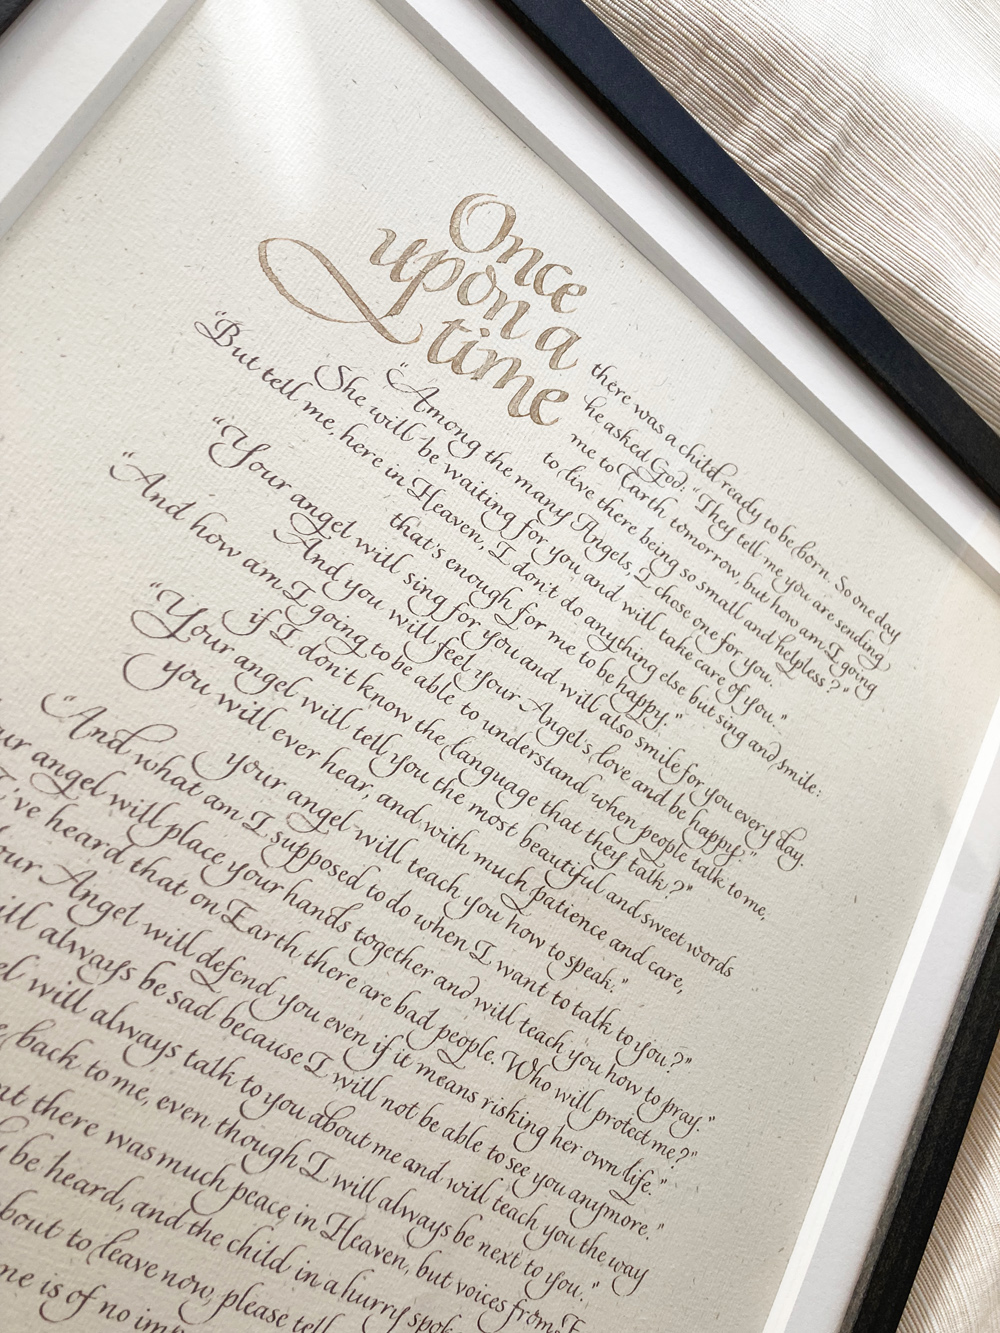 Once
upon a
time
there was a child ready to be born. So one day
he asked God: "They tell me you are sending
me to Earth tomorrow, but how am I going
to live there being so small and helpless?"
"Among the many Angels, I chose one for you.
She will be waiting for you and will take care of you."
"But tell me, here in Heaven, I don't do anything else but sing and smile:
that's enough for me to be happy."
"Your angel will sing for you and will also smile for you every day.
And you will feel your Angel's love and be happy."
"And how am I going to be able to understand when people talk to me,
if I don't know the language that they talk?"
"Your angel will tell you the most beautiful and sweet words
you will ever hear, and with much patience and care,
your angel will teach you how to speak."
"And what am I supposed to do when I want to talk to you?"
angel will place your hands together and will teach you how to pray."
I've heard that on Earth there are bad people. Who will protect me?"
Angel will defend you even if it means risking her own life."
always be sad because I will not be able to see you anymore."
will always talk to you about me and will teach you the way
back to me, even though I will always be next to you."
there was much peace in Heaven, but voices from
be heard, and the child in a hurry
to leave now, please tell
is of no